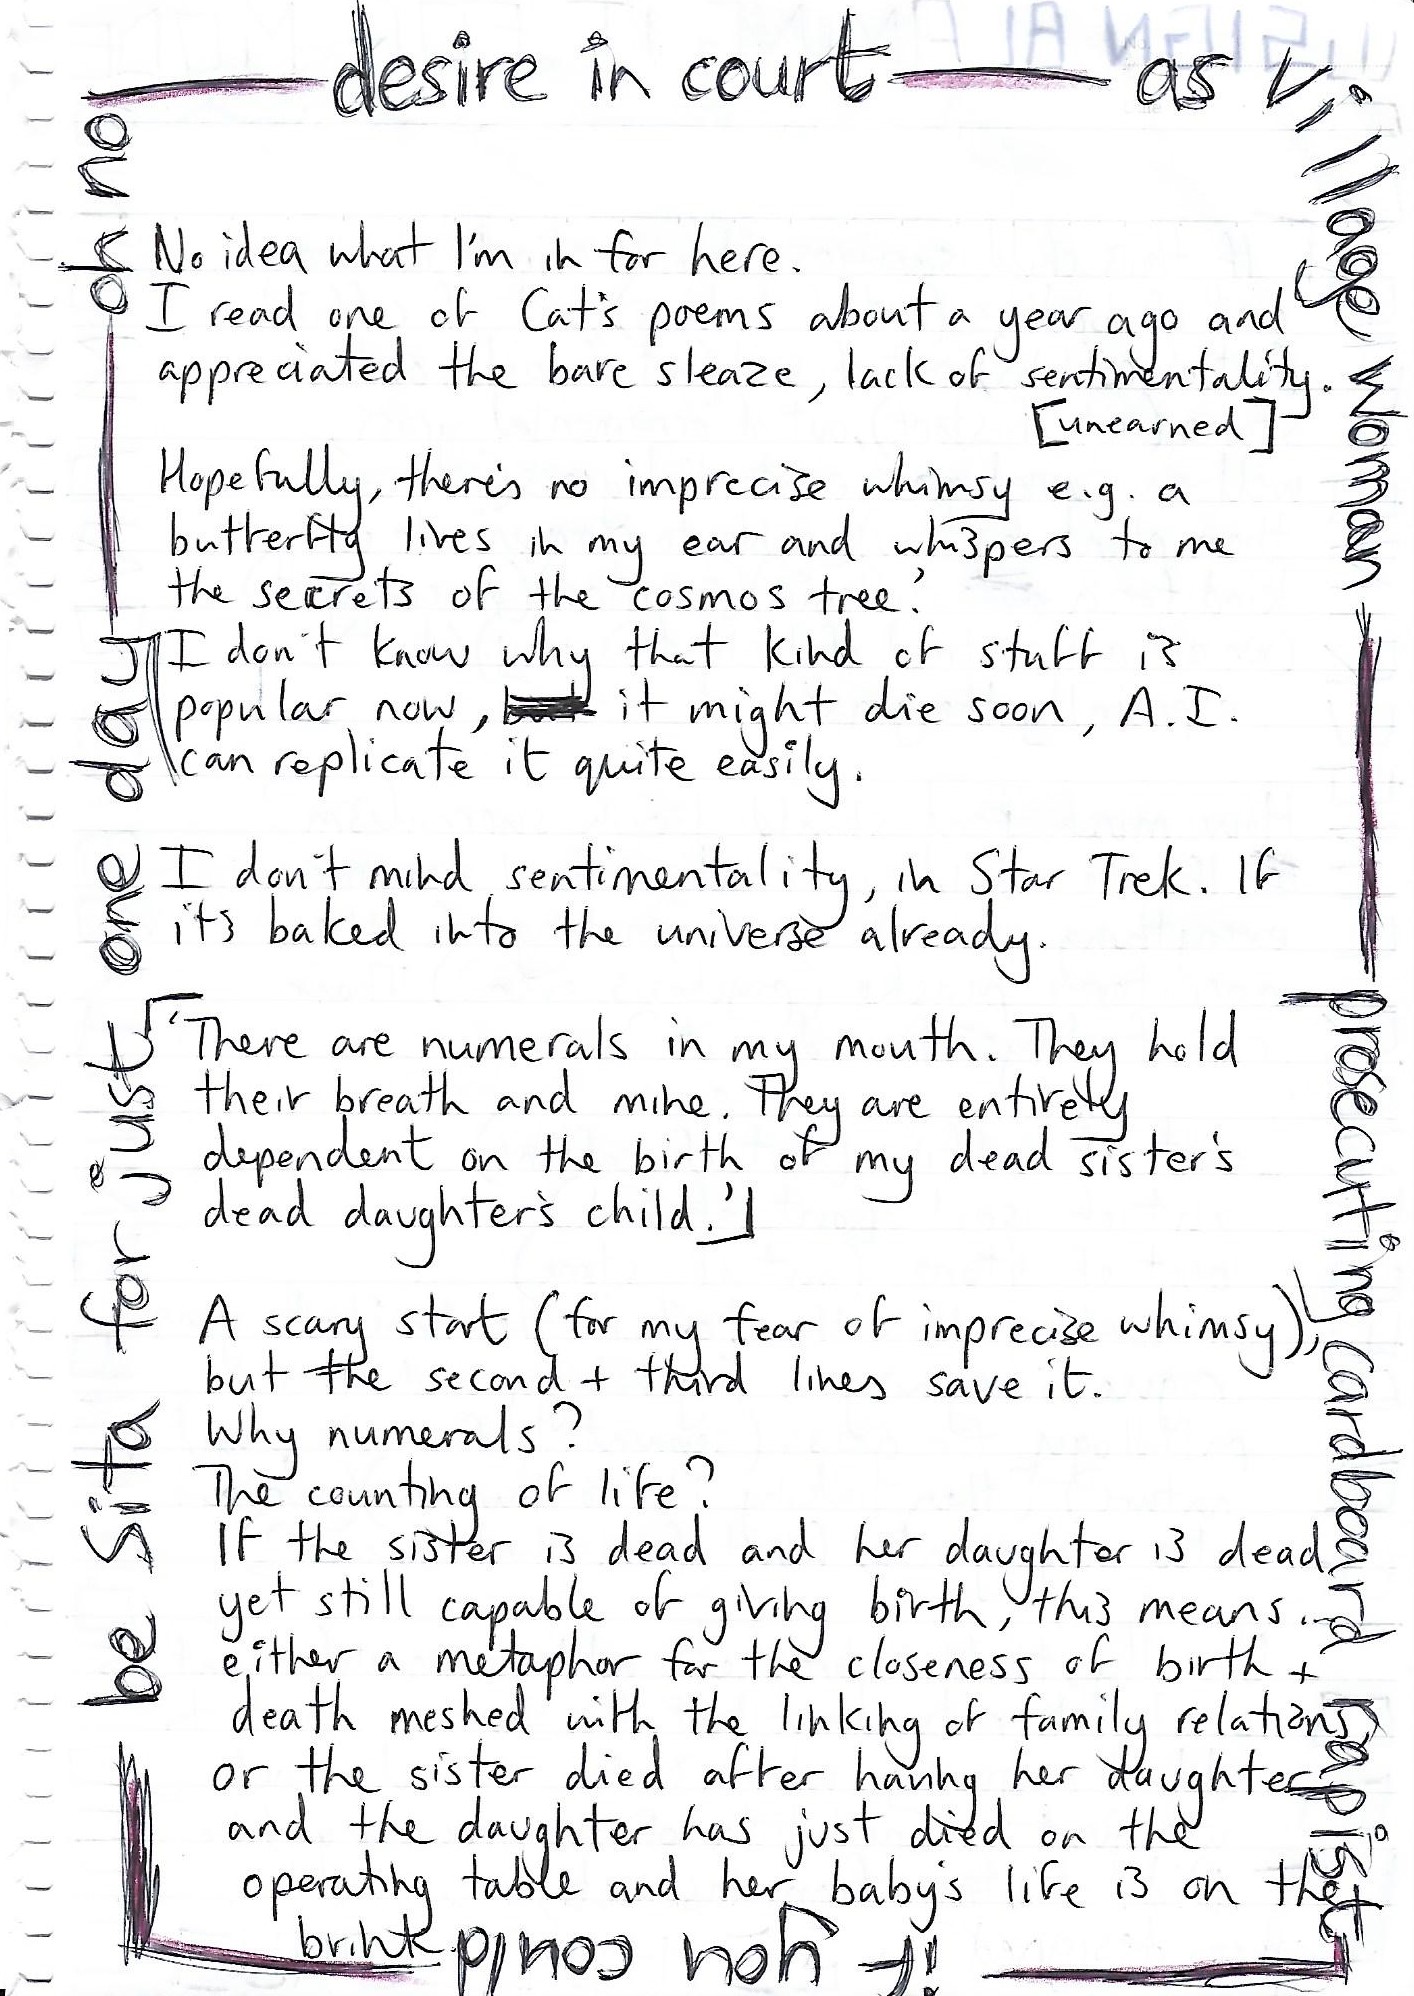 desire in court
as village woman
prosecuting cardboard rapist
if you could
be Sita for just one day
oh no
No idea what I'm in for here.
I read one of Cat's poems about a year ago and
appreciated the bare sleaze, lack of sentimentality.
[unearned]
Hopefully, there's no imprecise whimsy e.g. a
butterfly lives in my ear and whispers to me
the secrets of the cosmos tree.'
I don't know why that kind of stuff is
popular now, it might die soon, A.I.
can replicate it quite easily.
I don't mind sentimentality, in Star Trek. If
it's baked into the universe already.
「'There are numerals in my mouth. They hold
their breath and mine. They are entirely
dependent on the birth of my dead sister's
dead daughter's child.'」
A scary start (for my fear of imprecise whimsy),
but the second + third lines save it.
Why numerals?
The counting of life?
If the sister is dead and her daughter is dead
yet still capable of giving birth, this means...
either a metaphor for the closeness of birth +
death meshed with the linking of family relations,
or the sister died after having her daughter
and the daughter has just died on the
operating table and her baby's life is on the
brink.